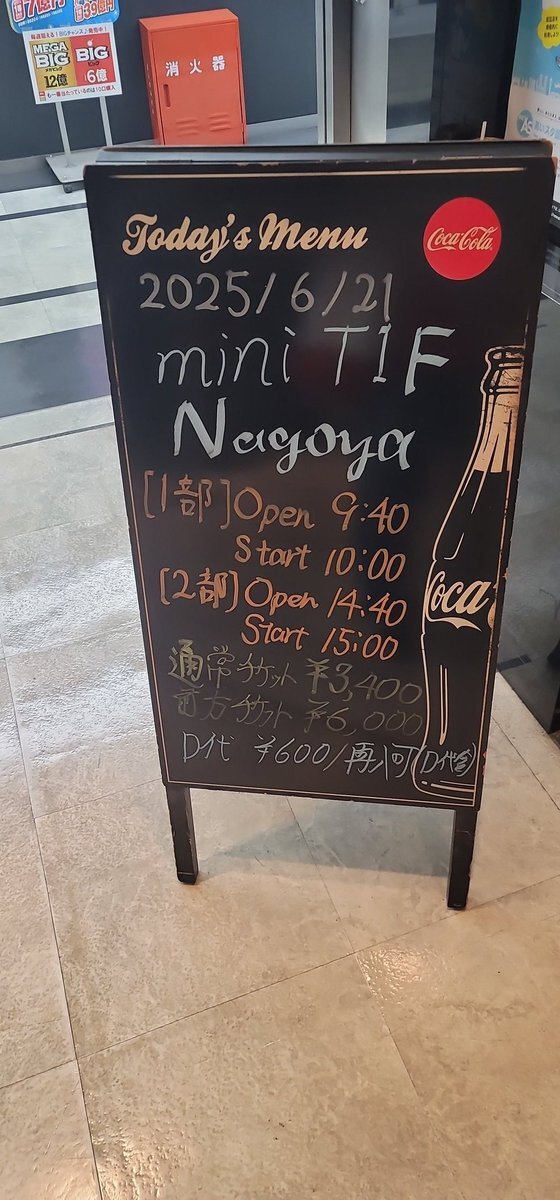 毎週狙える!BIGチャンス♪発売中!
MEGA
BIG
メガビッグ
12億
BIG
ビッグ
6億
消火器
Today's Menu
Coca-Cola
2025/6/21
mini TIF
Nagoya
[1部]Open 9:40
Start 10:00
[2部]Open 14:40
Start 15:00
通常チケット ¥3,400
前方チケット ¥6,000
D代 ¥600/再入可(D代含)
Coca